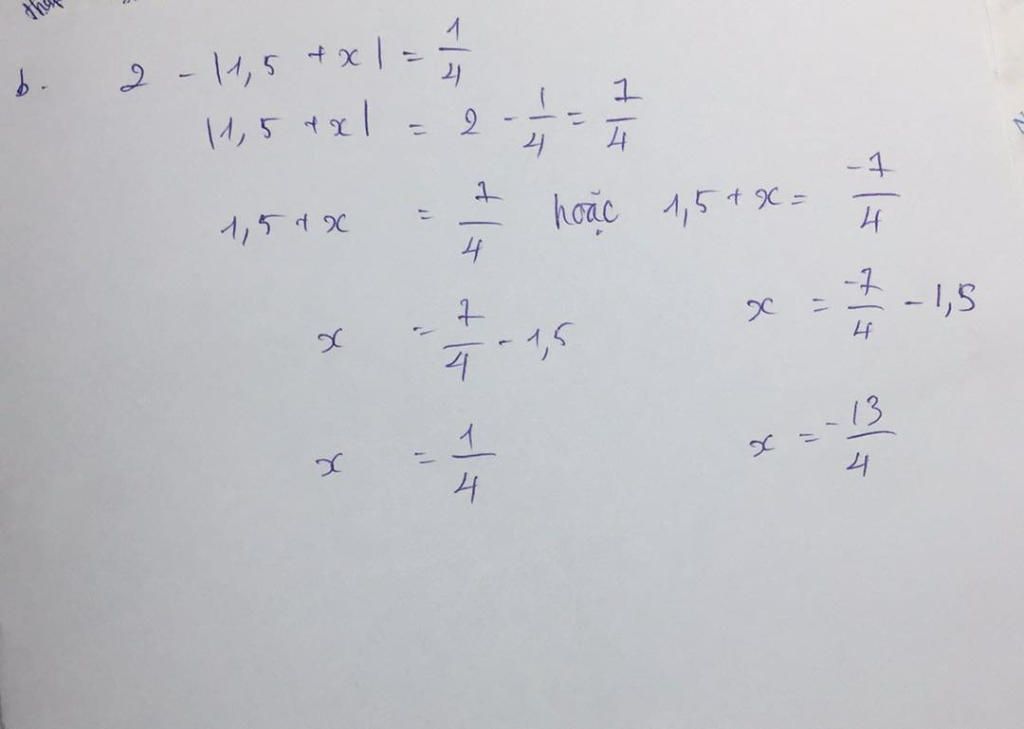 b. 2 - |1,5 + x| = 1/4
|1,5 + x| = 2 - 1/4 = 7/4
1,5 + x = 7/4 hoặc 1,5 + x = -7/4
x = 7/4 - 1,5 x = -7/4 - 1,5
x = 1/4 x = -13/4